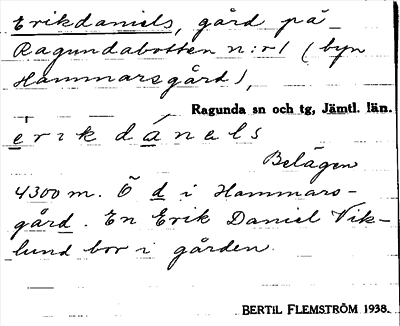 Erikdaniels, gård på
Ragundabotten n:r 1 (byn
Hammarsgård),
Ragunda sn och tg, Jämtl. län.
erik dánels
Belägen
4300 m. Ö d i Hammars-
gård. En Erik Daniel Vik-
lund bor i gården.
BERTIL FLEMSTRÖM 1938.